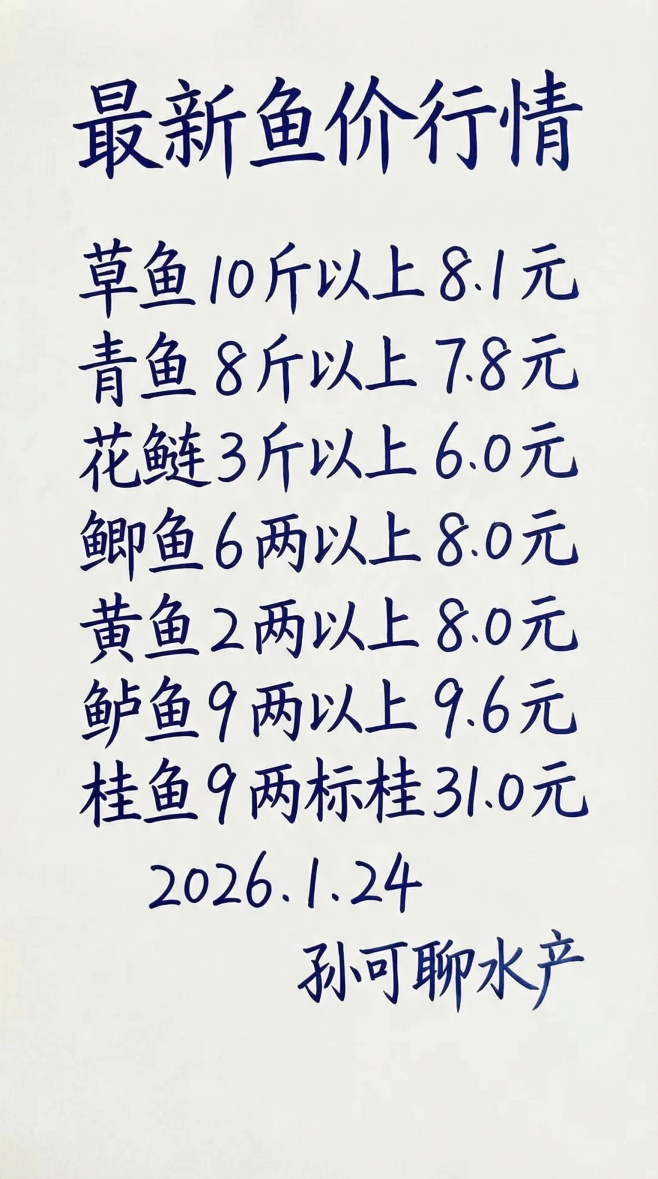 最新鱼价行情
草鱼10斤以上8.1元
青鱼8斤以上7.8元
花鲢3斤以上6.0元
鲫鱼6两以上8.0元
黄鱼2两以上8.0元
鲈鱼9两以上9.6元
桂鱼9两标桂31.0元
2026.1.24
孙可聊水产